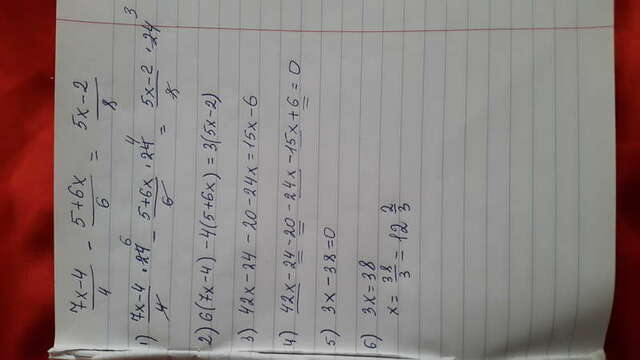 7x-4/4 - 5+6x/6 = 5x-2/8
1) 7x-4/4 · 24⁶ - 5+6x/6 · 24⁴ = 5x-2/8 · 24³
2) 6(7x-4) -4(5+6x) = 3(5x-2)
3) 42x-24 -20-24x=15x-6
4) 42x-24-20-24x-15x+6=0
5) 3x-38=0
6) 3x=38
x= 38/3 = 12 2/3